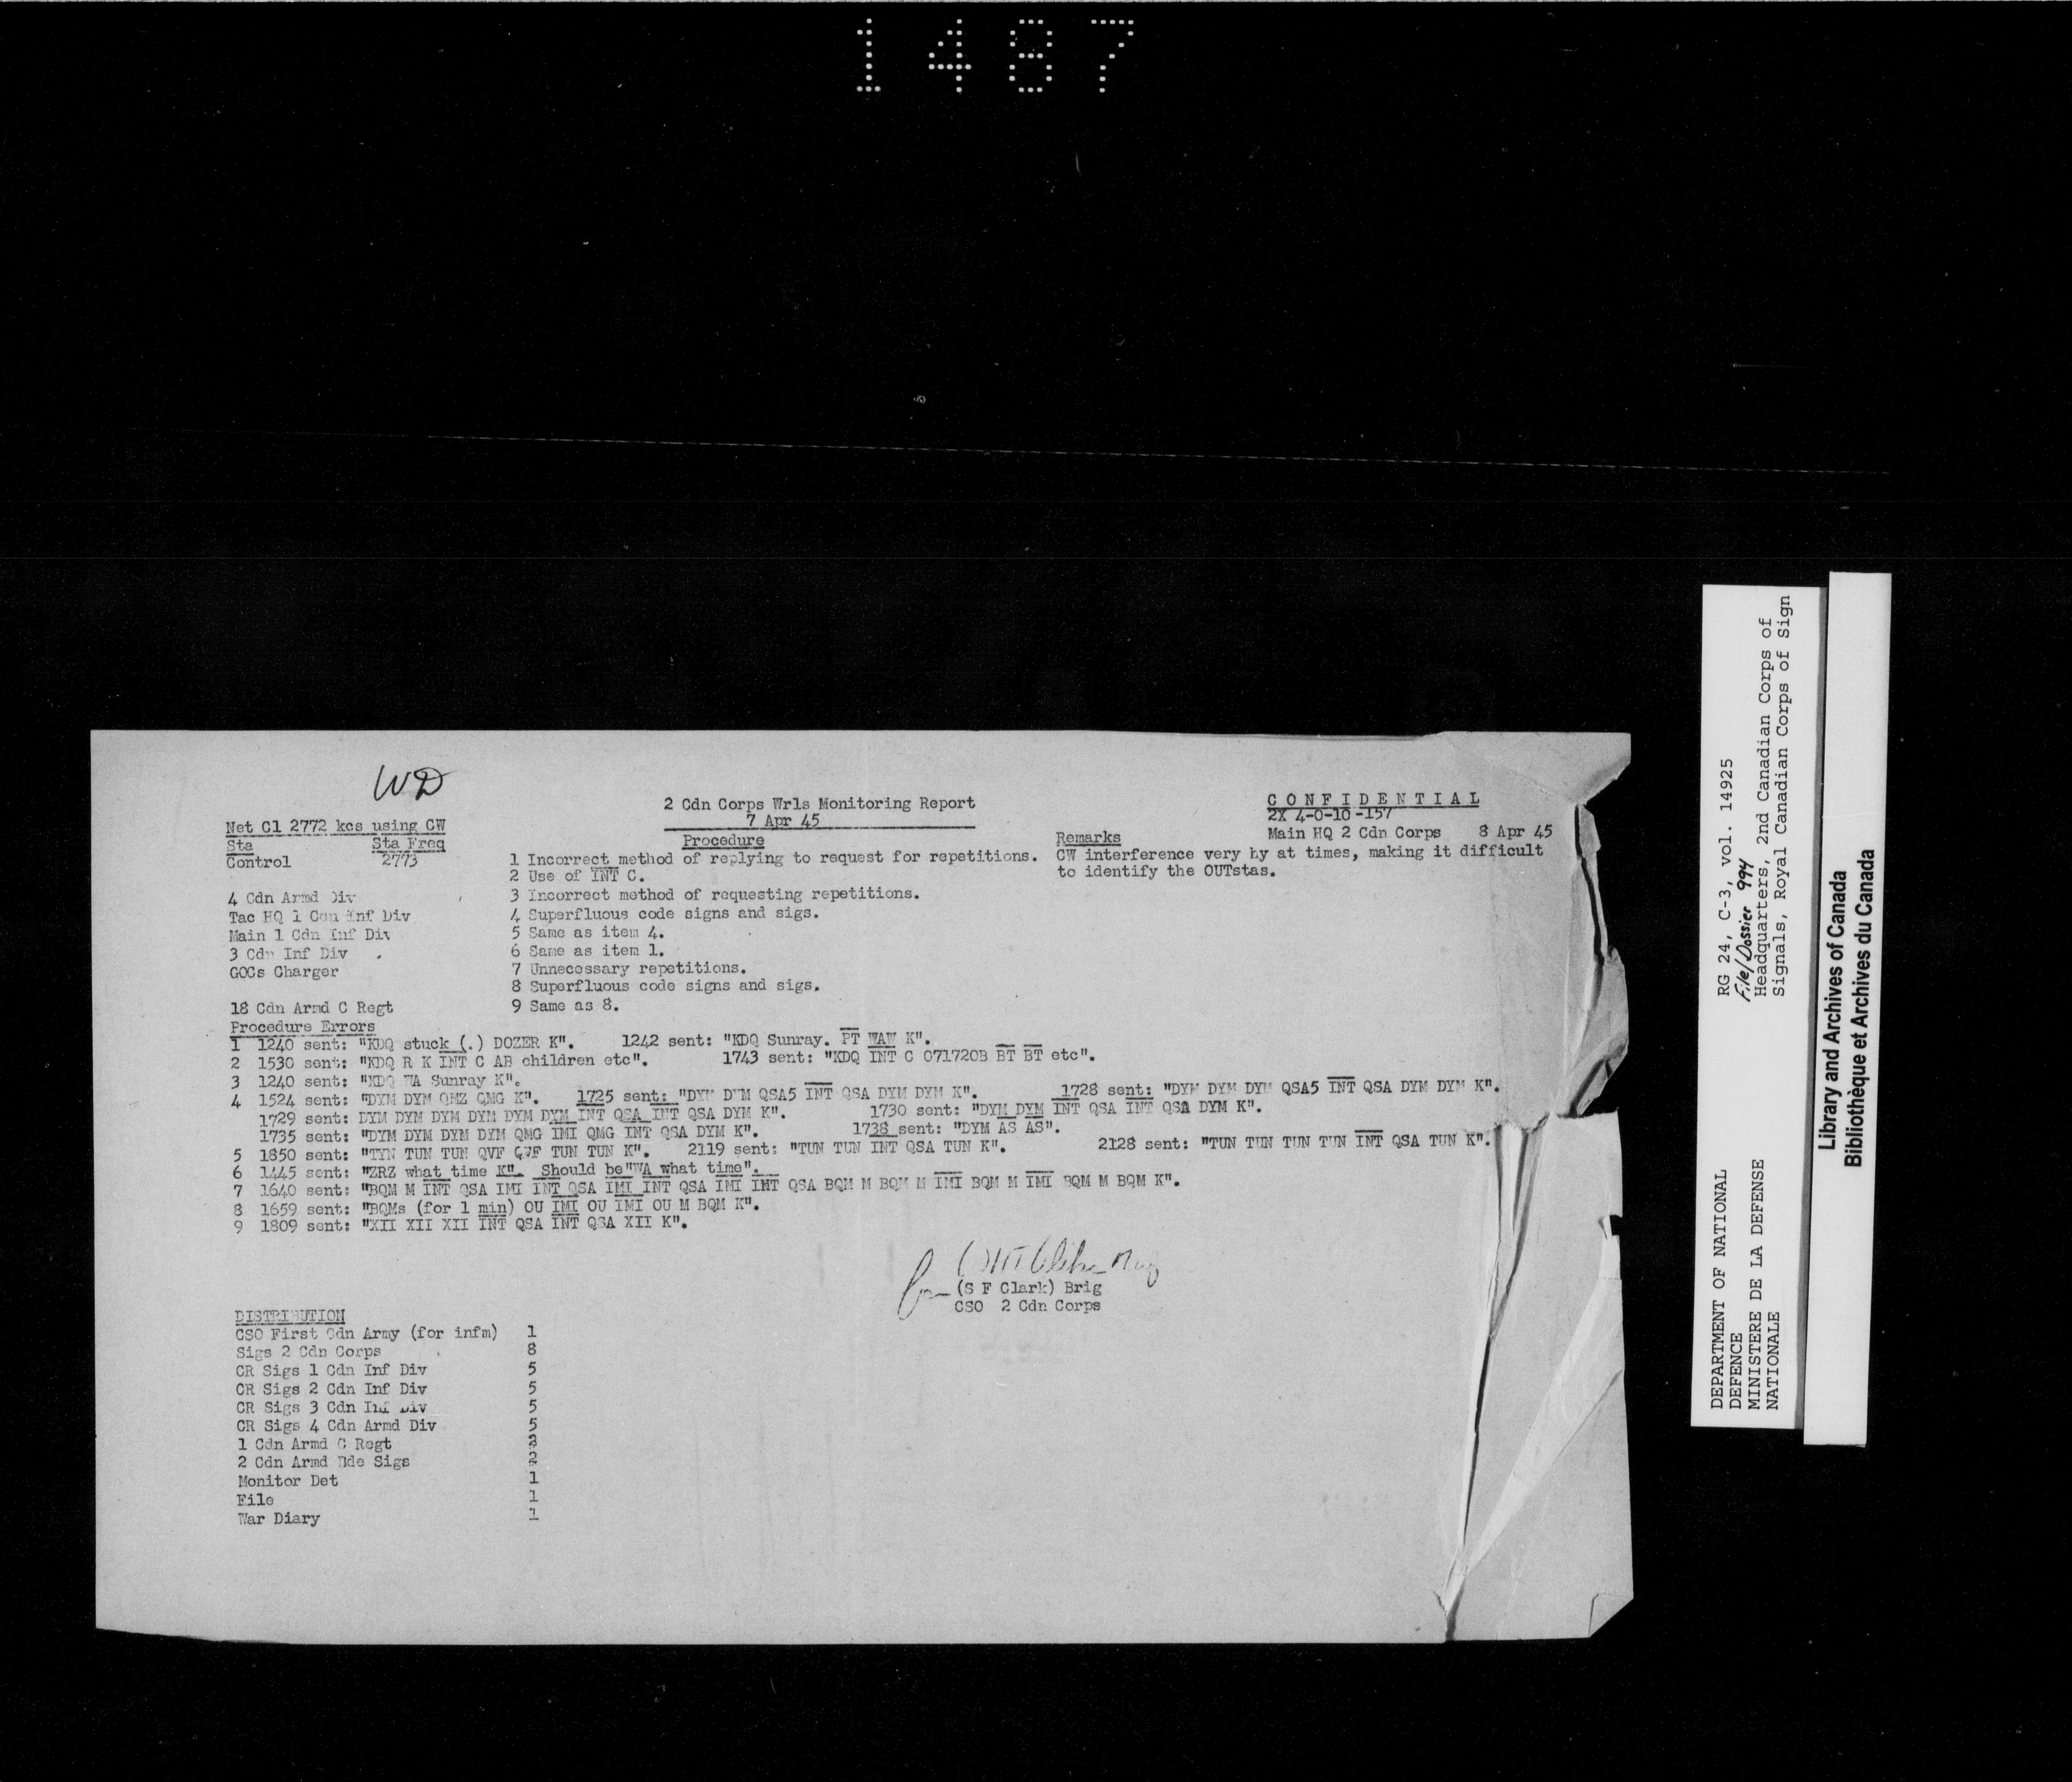 1487
WD
2 Cdn Corps Wrls Monitoring Report
7 Apr 45
CONFIDENTIAL
2X 4-0-10-157
Main HQ 2 Cdn Corps 8 Apr 45
Net C1 2772 kcs using CW
Sta Sta Freq
Control 2773
4 Cdn Armd Div
Tac HQ 1 Cdn Inf Div
Main 1 Cdn Inf Div
3 Cdn Inf Div
GOCs Charger
18 Cdn Armd C Regt
Procedure
1 Incorrect method of replying to request for repetitions.
2 Use of INT C.
3 Incorrect method of requesting repetitions.
4 Superfluous code signs and sigs.
5 Same as item 4.
6 Same as item 1.
7 Unnecessary repetitions.
8 Superfluous code signs and sigs.
9 Same as 8.
Remarks
CW interference very hy at times, making it difficult
to identify the OUTstas.
Procedure Errors
1 1240 sent: "KDQ stuck (.) DOZER K". 1242 sent: "KDQ Sunray. PT WAW K".
2 1530 sent: "KDQ R K INT C AB children etc". 1743 sent: "KDQ INT C 071720B BT BT etc".
3 1240 sent: "KDQ WA Sunray K".
4 1524 sent: "DYM DYM QMZ QMG K". 1725 sent: "DYM DYM QSA5 INT QSA DYM DYM K". 1728 sent: "DYM DYM DYM QSA5 INT QSA DYM DYM K".
1729 sent: DYM DYM DYM DYM DYM DYM INT QSA INT QSA DYM K". 1730 sent: "DYM DYM INT QSA INT QSA DYM K".
1735 sent: "DYM DYM DYM DYM QMG IMI QMG INT QSA DYM K". 1738 sent: "DYM AS AS".
5 1850 sent: "TYN TUN TUN QVF QVF TUN TUN K". 2119 sent: "TUN TUN INT QSA TUN K". 2128 sent: "TUN TUN TUN TUN INT QSA TUN K".
6 1445 sent: "ZRZ what time K". Should be "WA what time".
7 1640 sent: "BQM M INT QSA IMI INT QSA IMI INT QSA IMI INT QSA BQM M BQM M IMI BQM M IMI BQM M BQM K".
8 1659 sent: "BQMs (for 1 min) OU IMI OU IMI OU M BQM K".
9 1809 sent: "XII XII XII INT QSA INT QSA XII K".
for
(S F Clark) Brig
CSO 2 Cdn Corps
DISTRIBUTION
CSO First Cdn Army (for infm) 1
Sigs 2 Cdn Corps 8
CR Sigs 1 Cdn Inf Div 5
CR Sigs 2 Cdn Inf Div 5
CR Sigs 3 Cdn Inf Div 5
CR Sigs 4 Cdn Armd Div 5
1 Cdn Armd C Regt
2 Cdn Armd Bde Sigs 2
Monitor Det 1
File 1
War Diary 1
DEPARTMENT OF NATIONAL
DEFENCE
MINISTERE DE LA DEFENSE
NATIONALE
RG 24, C-3, vol. 14925
File/Dossier 994
Headquarters, 2nd Canadian Corps of
Signals, Royal Canadian Corps of Sign
Library and Archives of Canada
Bibliothèque et Archives du Canada